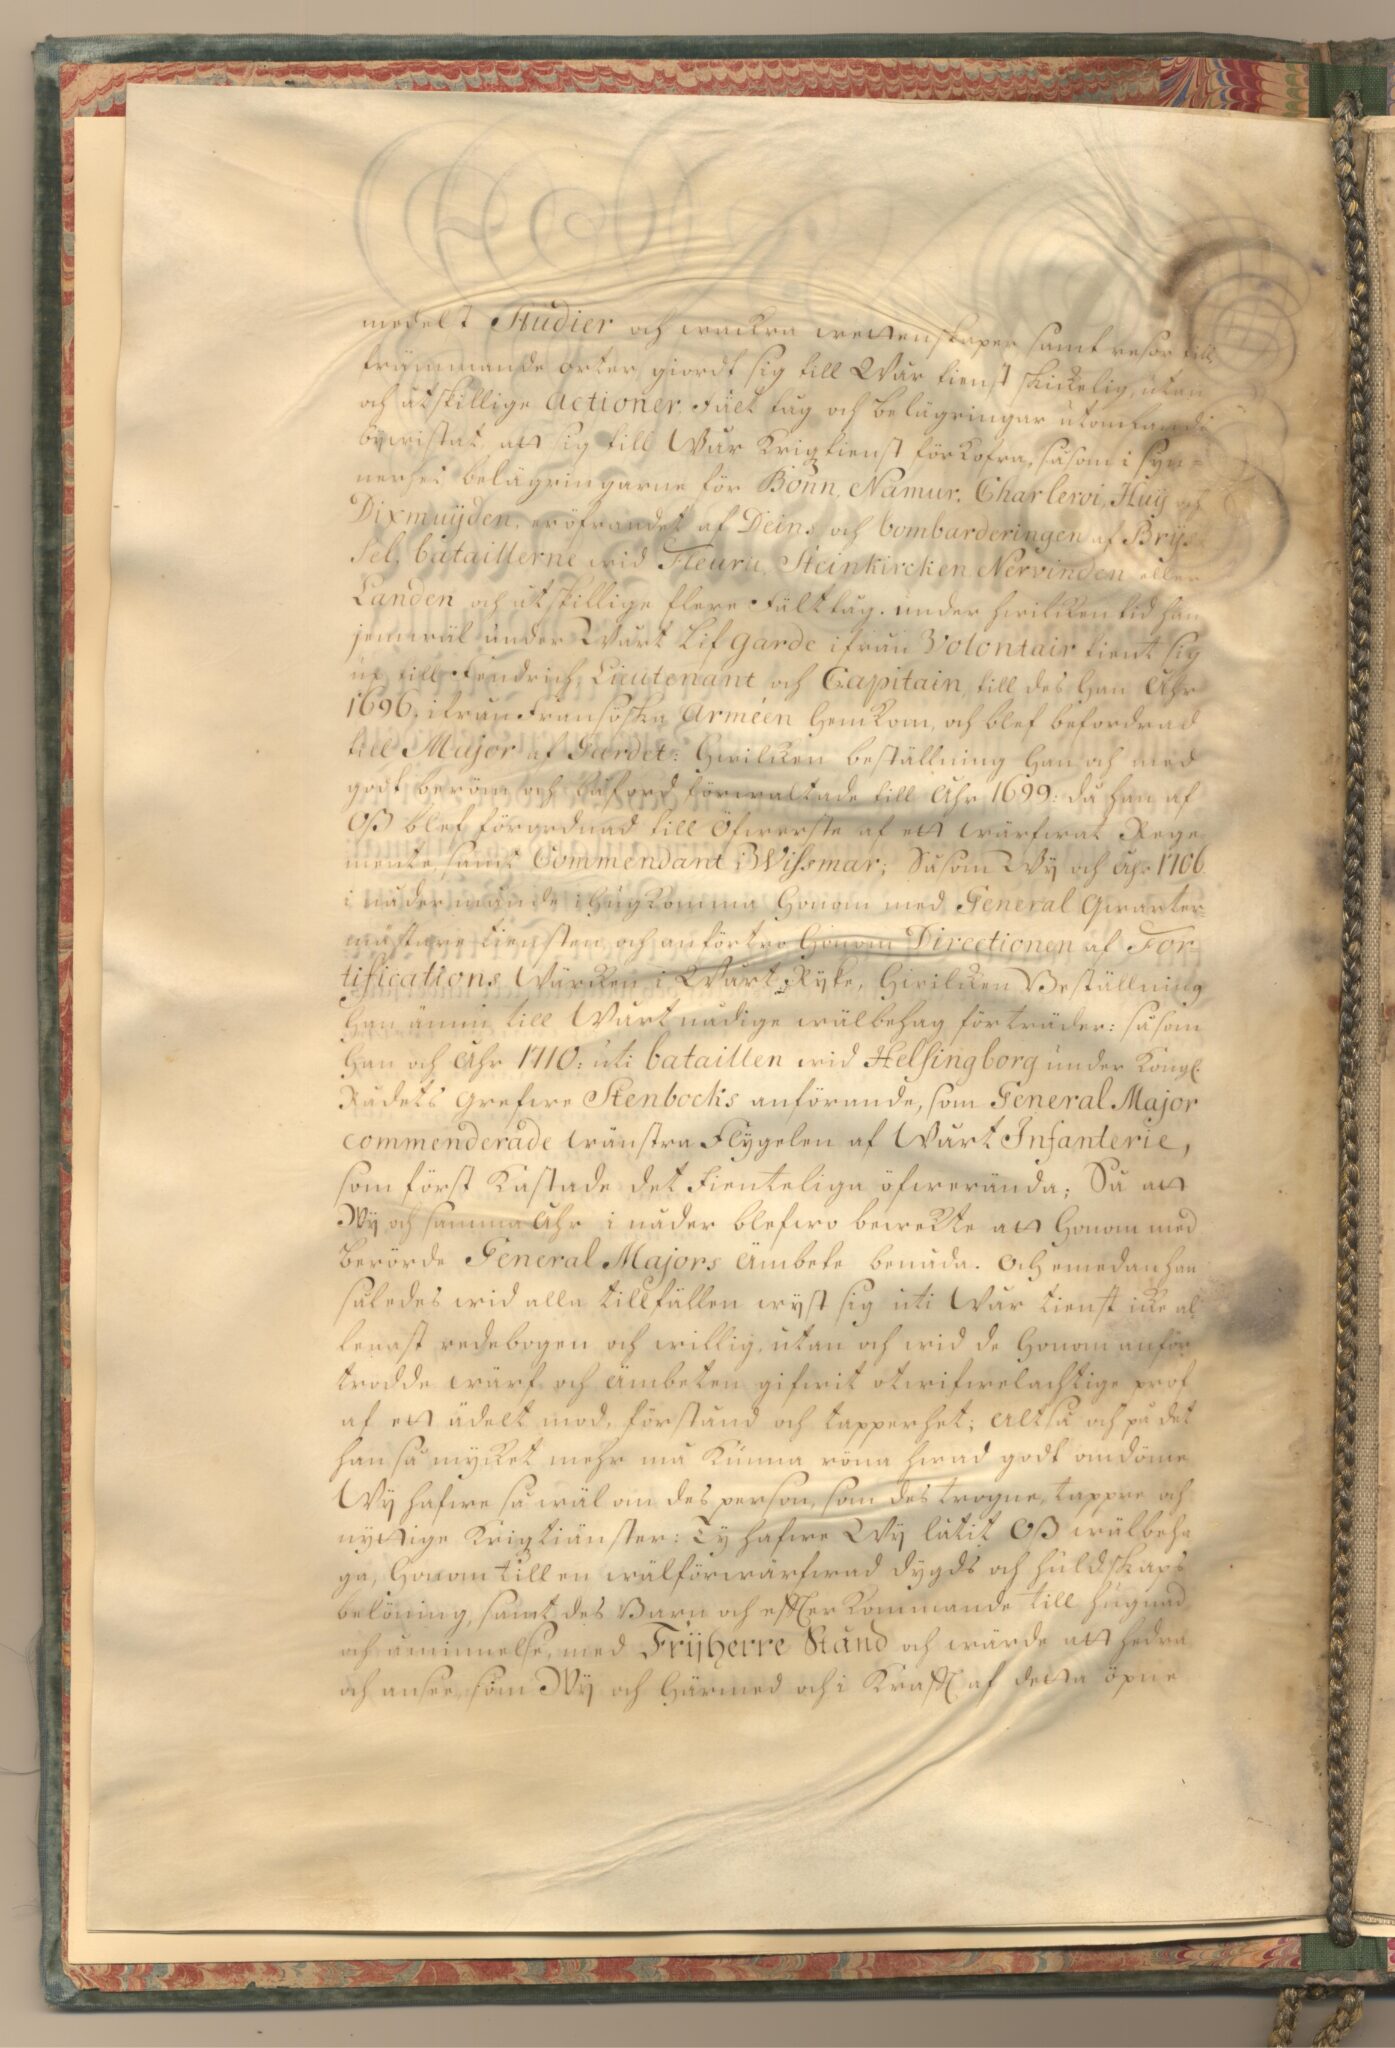 medelst Studier och wackra wettenskaper samt resor till
främmande orter, giordt sig till Wår tienst skickelig, utan
och åtskillige Actioner, Fält tug och belägringar utomlands
bywistat, att sig till Wår Krigztienst förkofra, såsom i syn-
nerhet belägringarne för Bonn, Namur, Charleroi, Huy och
Dixmuyden, eröfrandet af Deins, och bombarderingen af Brys-
sel, bataillerne wid Fleuru, Steinkircken, Nervinden eller
Landen och åtskillige flere Fälttug. under hwilken tid han
jemwäl under Wårt Lif garde ifrån Volontair tient sig
up till Fendrich, Lieutenant och Capitain, till des Han Åhr
1696, ifrån Fransöska Arméen Hemkom, och blef befordrad
till Major af Gardet: Hwilken beställning Han och med
godt beröm och låford förwaltade till Åhr 1699: då han af
Oß blef förordnad till Öfwerste af ett wärfwat Rege-
mente, samt Commendant i Wissmar; Såsom Wy och Åhr 1706
i nåder månde ihugkomma Honom med General Qwarter-
mästare tiensten, och anförtro Honom Directionen af For-
tifications Wärcken i Wårt Ryke, Hwilken Beställning
Han ännu till Wårt nådige wälbehag förträder: såsom
Han och Åhr 1710: uti bataillen wid Helsingborg under Kongl.
Rådets Grefwe Stenbocks anförande, som General Major
commenderade wänstra Flygelen af Wårt Infanterie,
som först kastade det Fienteliga öfwerända; Så att
Wy och samma Åhr i nåder blefwo bewekte att Honom med
berörde General Majors Ämbete benåda. Och emedan han
således wid alla tillfällen wyst sig uti Wår tienst icke al-
lenast redebogen och willig, utan och wid de Honom anför-
trodde wärf och Ämbeten gifwit otwifwelachtige prof
af ett ädelt mod, förstånd och tapperhet; Altså och på det
han så mycket mehr må kunna röna hwad godt omdöme
Wy hafwe så wäl om des person, som des trogne, tappre och
nyttige Krigztiänster: Ty hafwe Wy låtit Oß wälbeha-
ga, Honom till en wälförwärfwad dygds och huldskaps
belöning, samt des Barn och efftterkommande till hugnad
och åminnelse, med Fryherre Stånd och wärde att hedra
och ansee, som Wy och Härmed och i Krafft af detta öpne